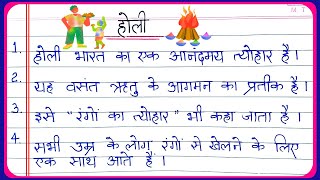 होली
1. होली भारत का एक आनंदमय त्योहार है।
2. यह वसंत ऋतु के आगमन का प्रतीक है।
3. इसे "रंगों का त्योहार" भी कहा जाता है।
4. सभी उम्र के लोग रंगों से खेलने के लिए
एक साथ आते हैं।